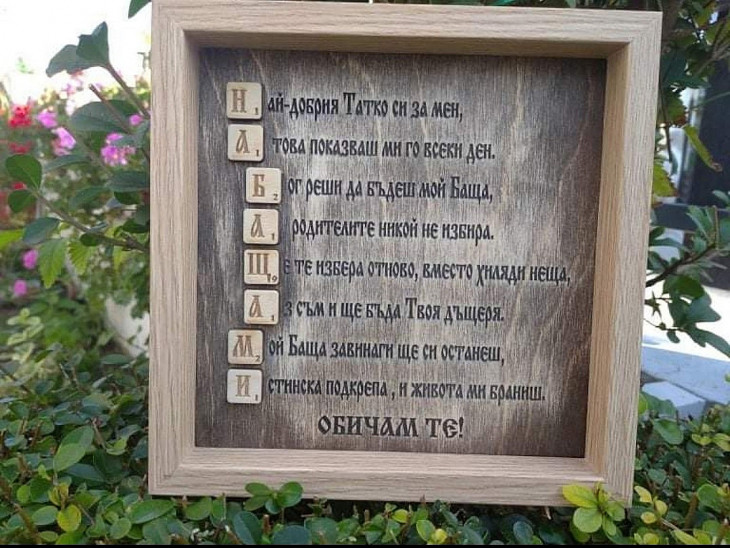 Най-добрия Татко си за мен,
А това показваш ми го всеки ден.
Бог реши да бъдеш мой Баща,
А родителите никой не избира.
Ще те избера отново, вместо хиляди неща,
Аз съм и ще бъда Твоя дъщеря.
Мой Баща завинаги ще си останеш,
Истинска подкрепа, и живота ми браниш.
ОБИЧАМ ТЕ!